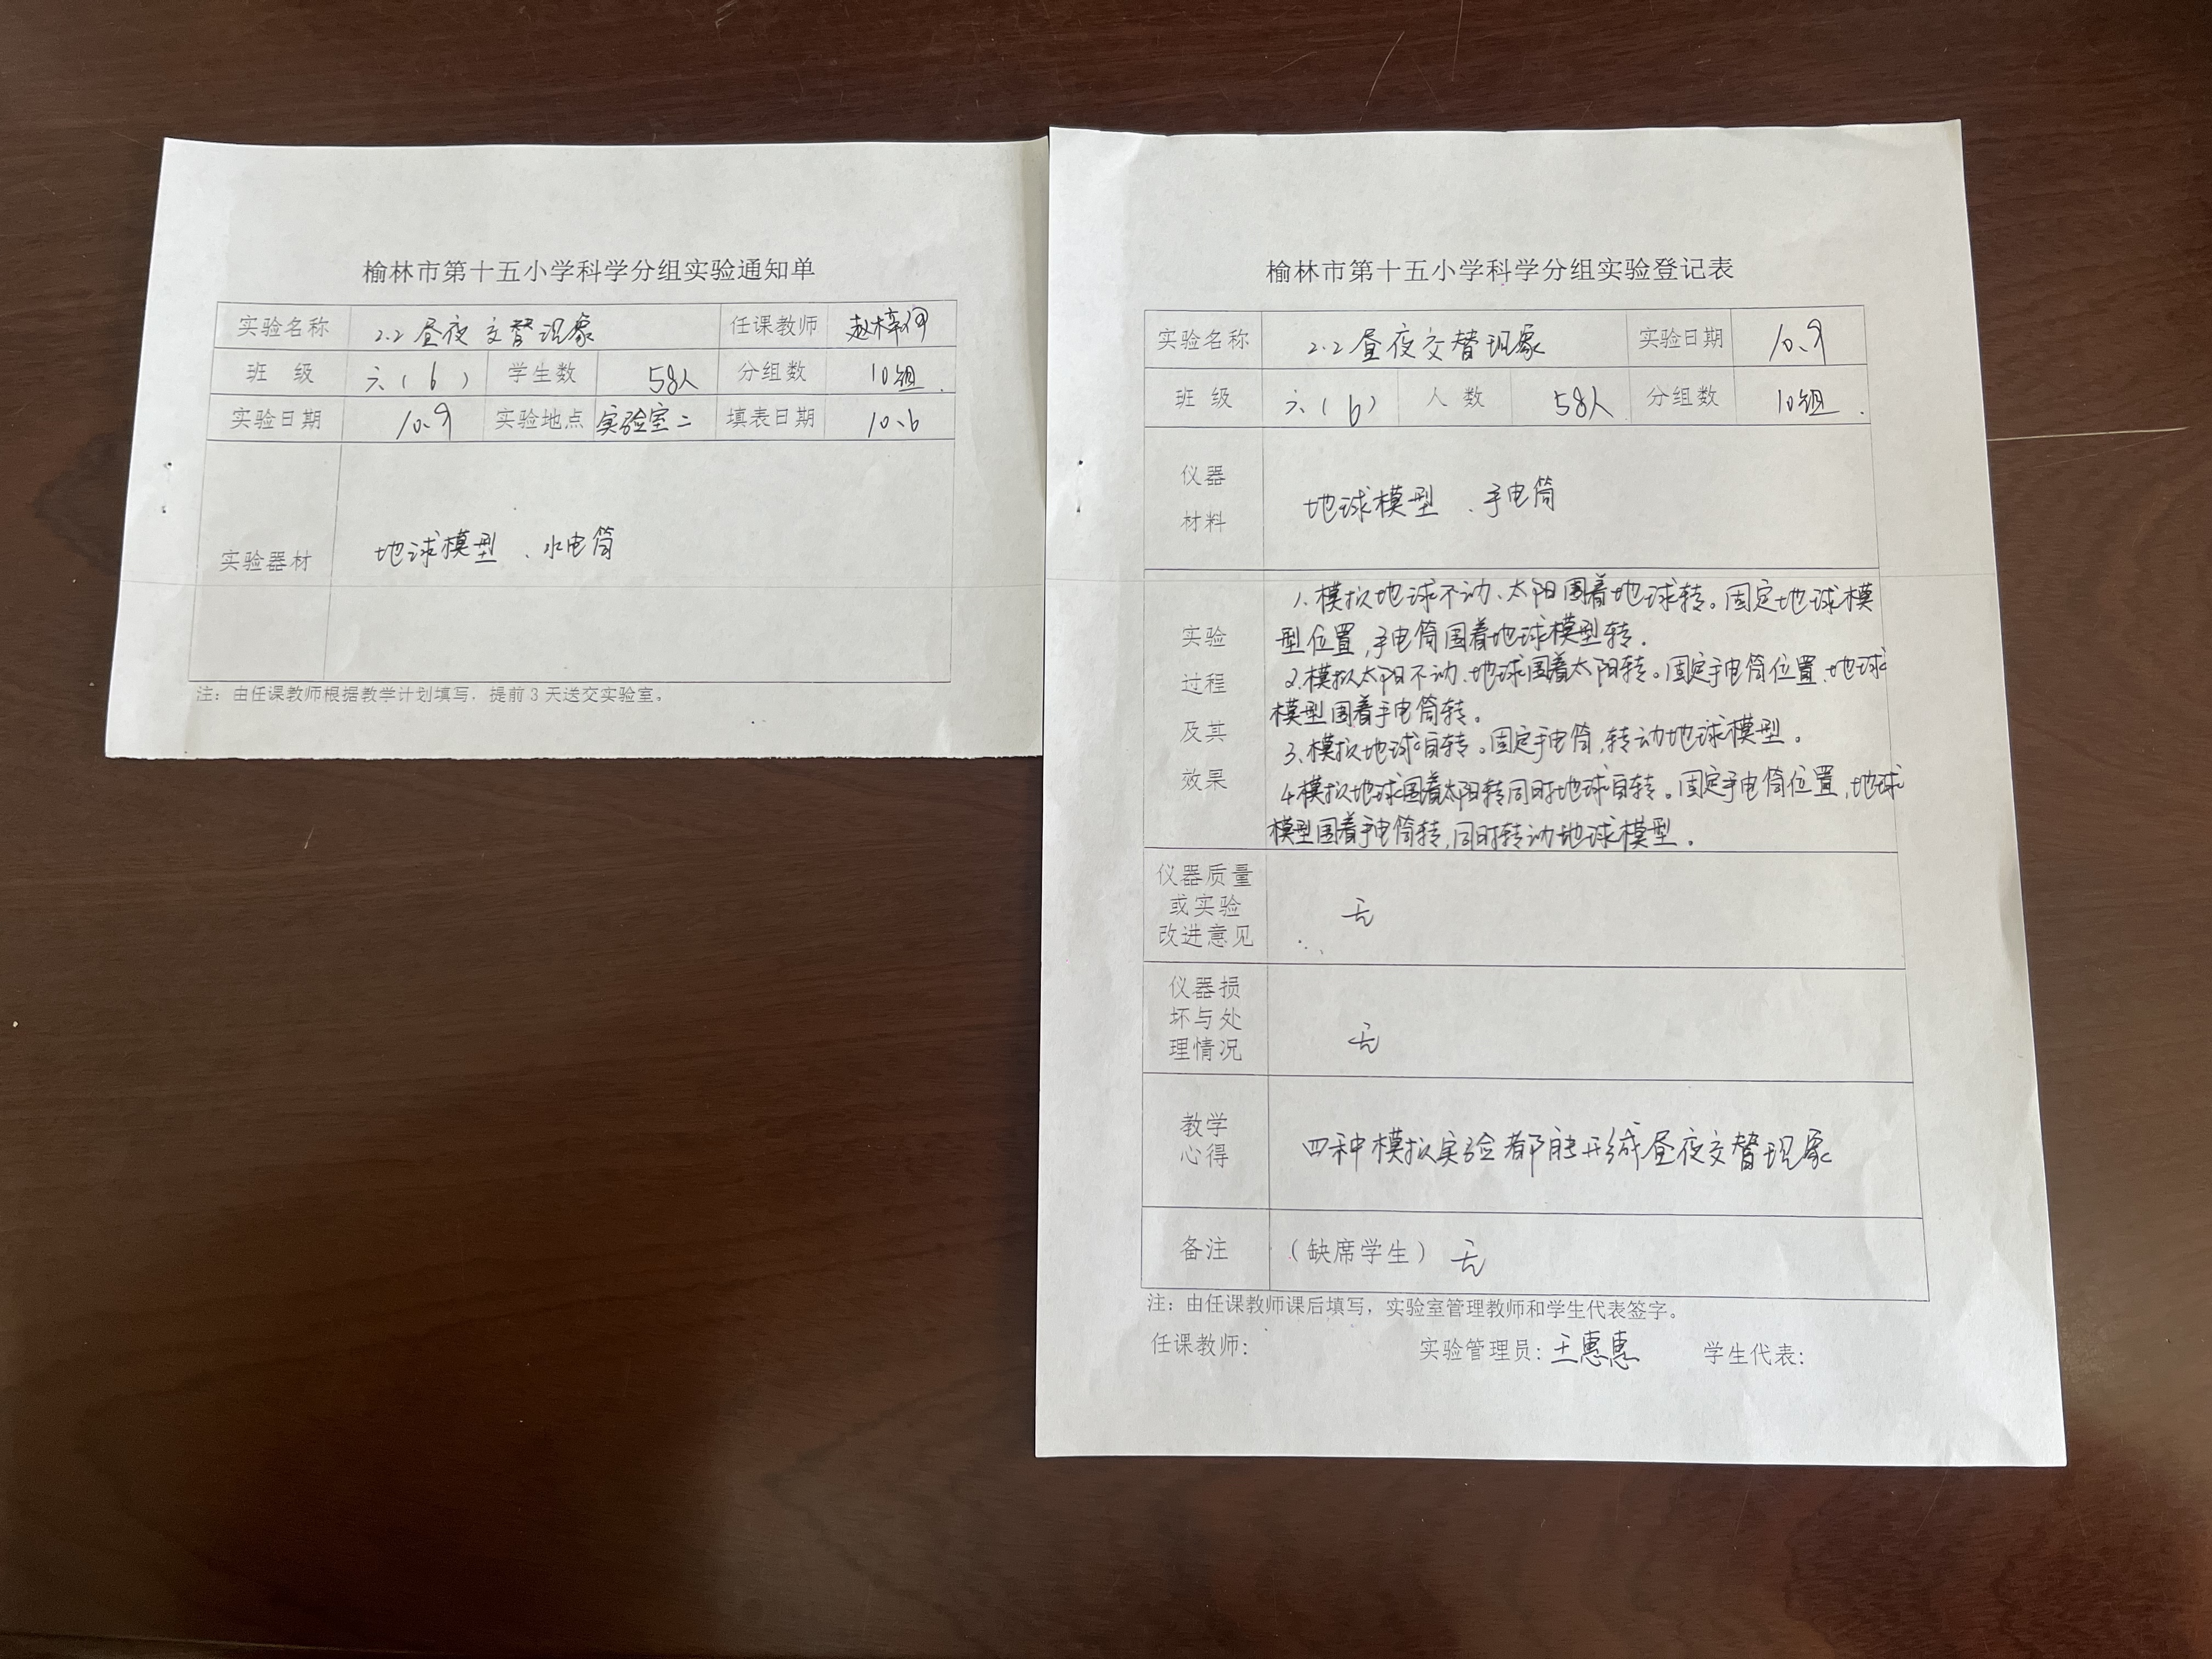 榆林市第十五小学科学分组实验通知单
实验名称 2.2昼夜交替现象 任课教师
班 级 六(6) 学生数 58人 分组数 10组.
实验日期 10.9 实验地点 实验室二 填表日期 10.6
实验器材 地球模型、水电筒
注：由任课教师根据教学计划填写，提前3天送交实验室。
榆林市第十五小学科学分组实验登记表
实验名称 2.2昼夜交替现象 实验日期 10.9
班 级 六(6) 人 数 58人 分组数 10组.
仪器
材料
地球模型、手电筒
实验
过程
及其
效果
1.模拟地球不动、太阳围着地球转。固定地球模
型位置,手电筒围着地球模型转.
2.模拟太阳不动、地球围着太阳转。固定手电筒位置、地球
模型围着手电筒转。
3.模拟地球自转。固定手电筒,转动地球模型。
4.模拟地球围着太阳转同时地球自转。固定手电筒位置,地球
模型围着手电筒转,同时转动地球模型.
仪器质量
或实验
改进意见
无
仪器损
坏与处
理情况
无
教学
心得
四种模拟实验都能形成昼夜交替现象
备注 （缺席学生）无
注：由任课教师课后填写，实验室管理教师和学生代表签字。
任课教师： 实验管理员：王惠惠 学生代表：